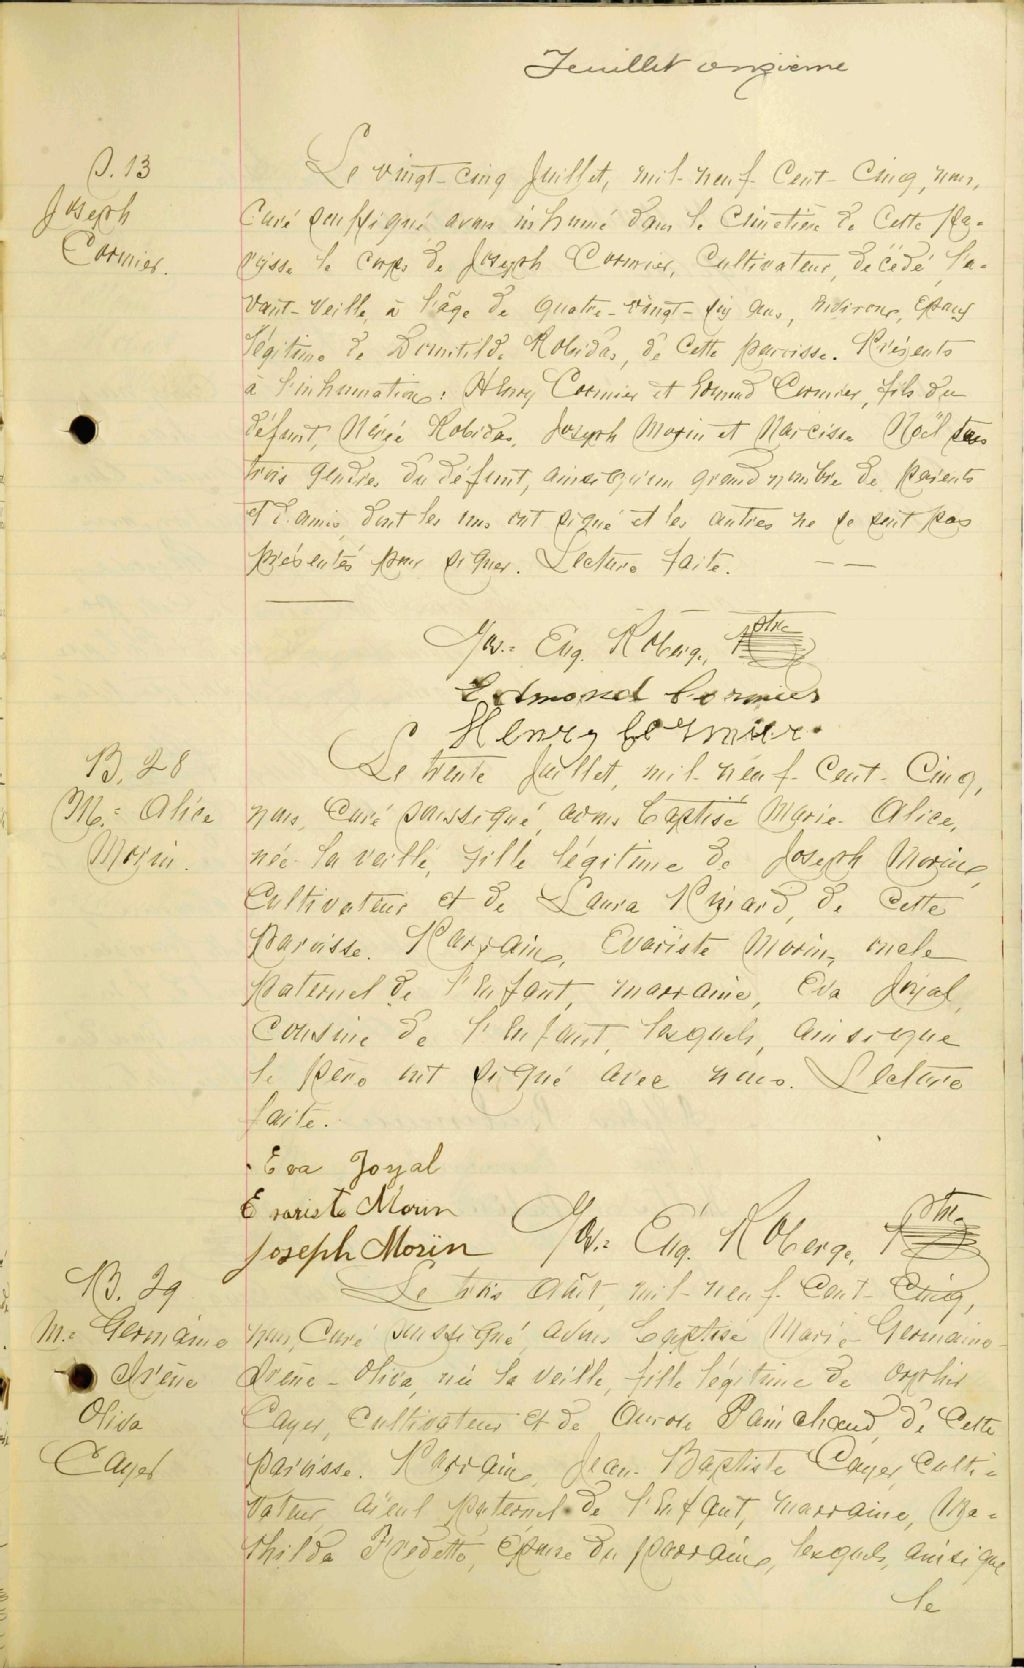 Feuillet onzième
S. 13
Joseph
Cormier.
Le vingt-cinq Juillet, mil-neuf-cent-cinq, nous,
Curé soussigné avons inhumé dans le Cimetière de cette pa-
roisse le corps de Joseph Cormier, Cultivateur, décédé l'a-
vant-veille, à l'âge de quatre-vingt-six ans, environ, époux
légitime de Domitilde Robidas, de cette paroisse. Présents
à l'inhumation: Henry Cormier et Edmond Cormier, fils du
défunt, Nérée Robidas, Joseph Morin et Narcisse Noël
trois gendres du défunt, ainsi qu'un grand nombre de parents
et d'amis dont les uns ont signé et les autres ne se sont pas
présentés pour signer. Lecture faite.
Jos.= Eug. Roberge, Ptre
Edmond Cormier
Henry Cormier.
B. 28
M.= Alice
Morin.
Le trente Juillet, mil-neuf-cent-cinq,
nous, Curé soussigné, avons baptisé Marie-Alice,
née la veille, fille légitime de Joseph Morin,
Cultivateur et de Laura Ricard, de cette
paroisse. Parrain, Evariste Morin, oncle
paternel de l'enfant, marraine, Eva Joyal,
Cousine de l'enfant, lesquels, ainsi que
le père ont signé avec nous. Lecture
faite.
Eva Joyal
Evariste Morin
Joseph Morin
Jos.= Eug. Roberge, Ptre
B. 29
M.= Germaine
Irène
Oliva
Cayer
Le trois Août, mil-neuf-cent-cinq,
nous, Curé soussigné, avons baptisé Marie-Germaine-
Irène-Oliva, née la veille, fille légitime de Orphir
Cayer, Cultivateur et de Aurore Painchaud, de cette
paroisse. Parrain, Jean-Baptiste Cayer, culti-
vateur, aïeul paternel de l'enfant, marraine, Ma-
thilda Fredette, épouse du parrain, lesquels, ainsi que
le